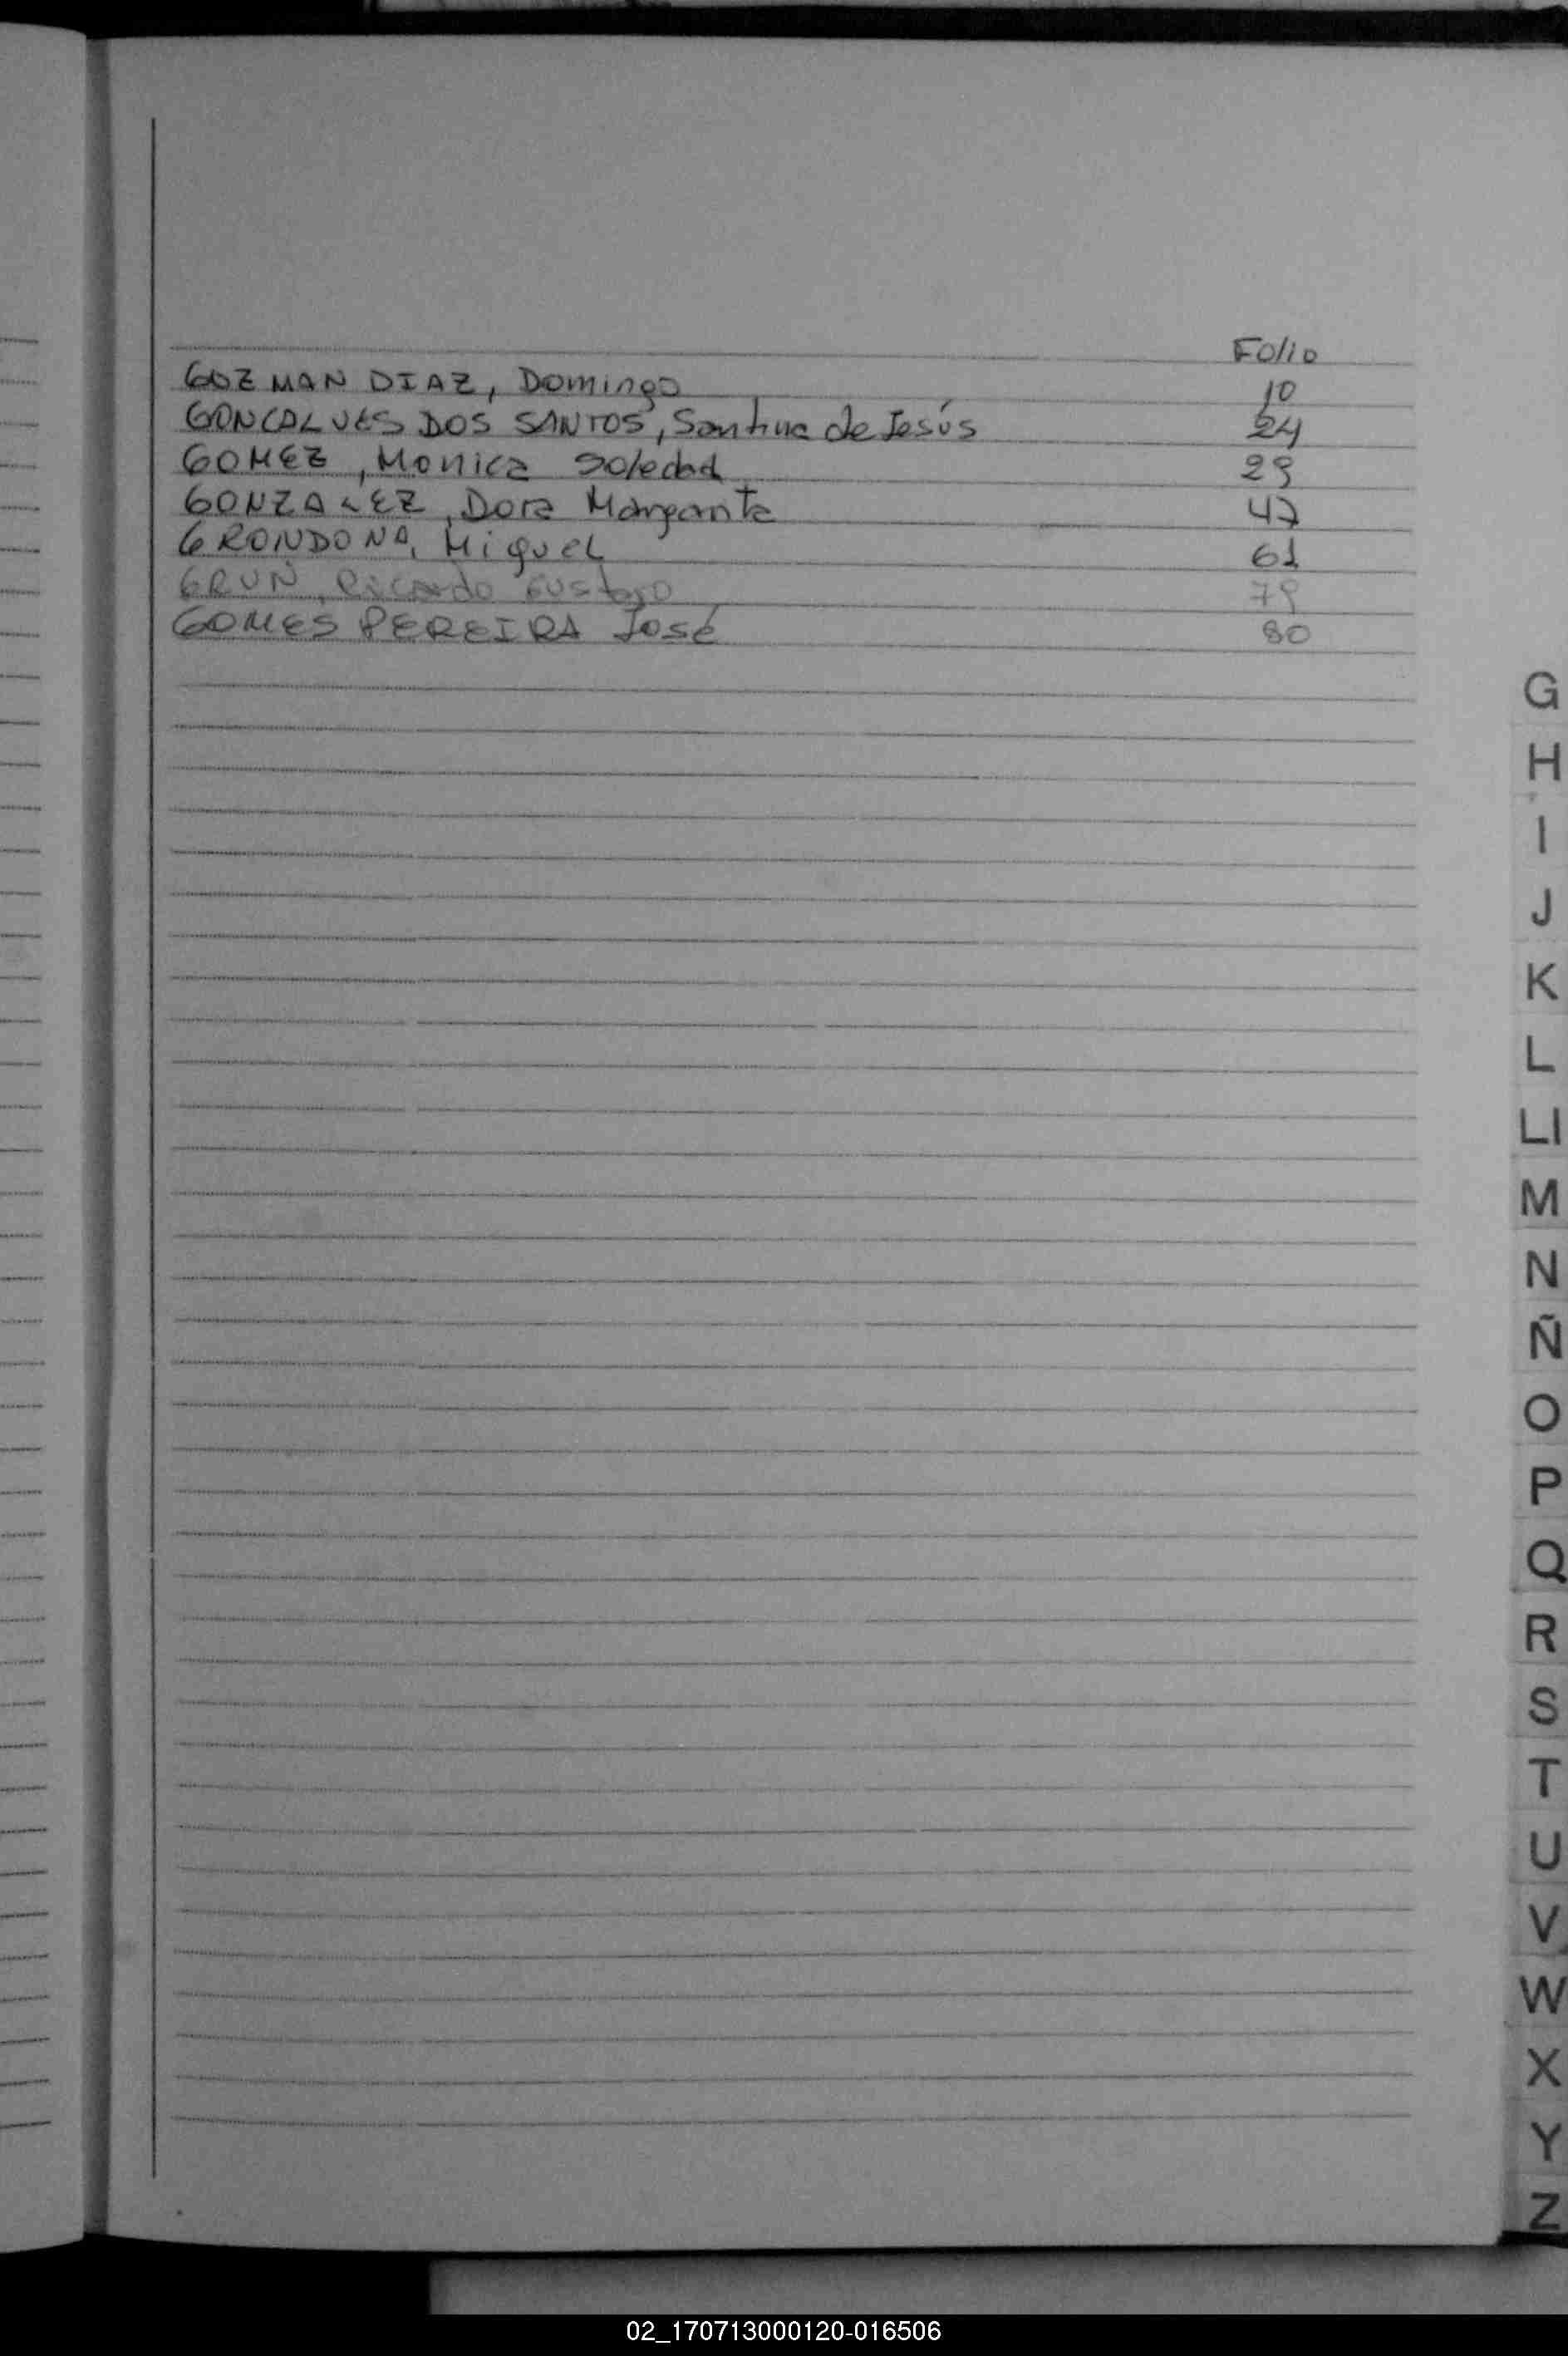 Folio
GUZMAN DIAZ, Domingo 10
GONCALVES DOS SANTOS, Santina de Jesús 24
GOMEZ, Monica Soledad 29
GONZALEZ, Dora Margarita 47
GRONDONA, Miguel 61
GRUN, Ricardo Gustavo 79
GOMES PEREIRA José 80
G
H
I
J
K
L
Ll
M
N
Ñ
O
P
Q
R
S
T
U
V
W
X
Y
Z
02_170713000120-016506